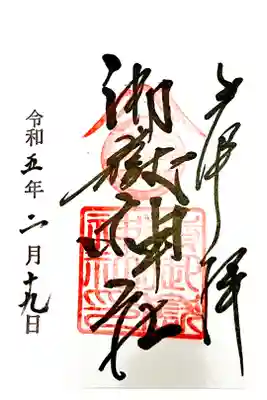 奉拝
御嶽神社
令和五年二月十九日